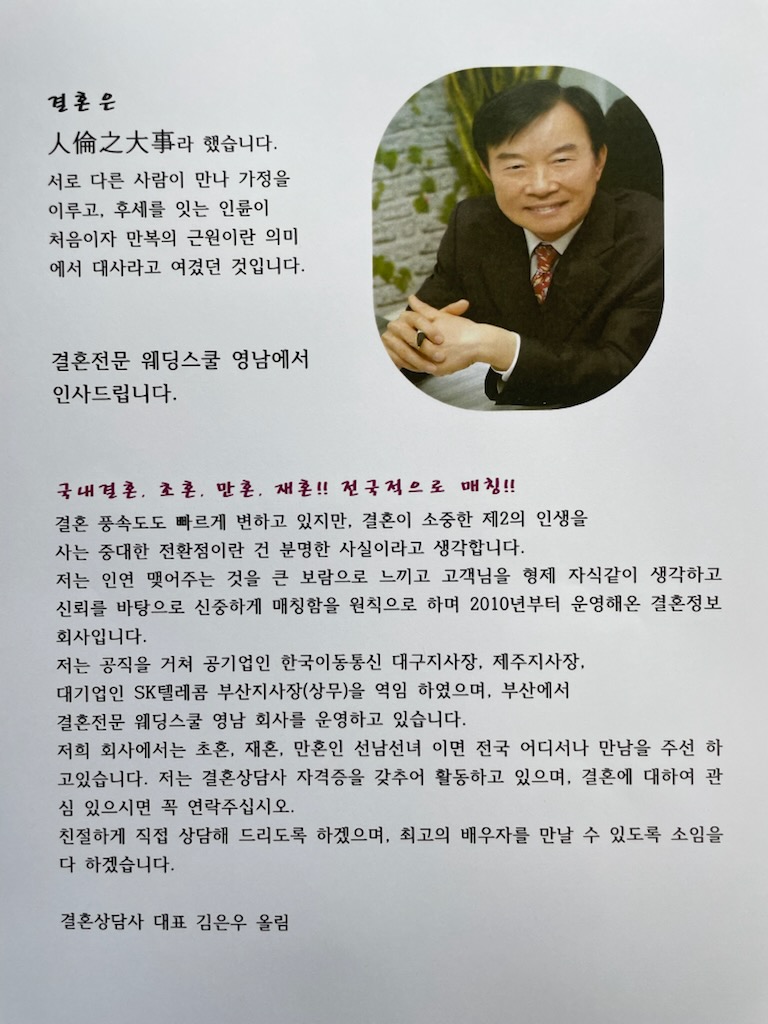 결혼은
人倫之大事라 했습니다.
서로 다른 사람이 만나 가정을
이루고, 후세를 잇는 인륜이
처음이자 만복의 근원이란 의미
에서 대사라고 여겼던 것입니다.
결혼전문 웨딩스쿨 영남에서
인사드립니다.
국내결혼, 초혼, 만혼, 재혼!! 전국적으로 매칭!!
결혼 풍속도도 빠르게 변하고 있지만, 결혼이 소중한 제2의 인생을
사는 중대한 전환점이란 건 분명한 사실이라고 생각합니다.
저는 인연 맺어주는 것을 큰 보람으로 느끼고 고객님을 형제 자식같이 생각하고
신뢰를 바탕으로 신중하게 매칭함을 원칙으로 하며 2010년부터 운영해온 결혼정보
회사입니다.
저는 공직을 거쳐 공기업인 한국이동통신 대구지사장, 제주지사장,
대기업인 SK텔레콤 부산지사장(상무)을 역임 하였으며, 부산에서
결혼전문 웨딩스쿨 영남 회사를 운영하고 있습니다.
저희 회사에서는 초혼, 재혼, 만혼인 선남선녀 이면 전국 어디서나 만남을 주선 하
고있습니다. 저는 결혼상담사 자격증을 갖추어 활동하고 있으며, 결혼에 대하여 관
심 있으시면 꼭 연락주십시오.
친절하게 직접 상담해 드리도록 하겠으며, 최고의 배우자를 만날 수 있도록 소임을
다 하겠습니다.
결혼상담사 대표 김은우 올림